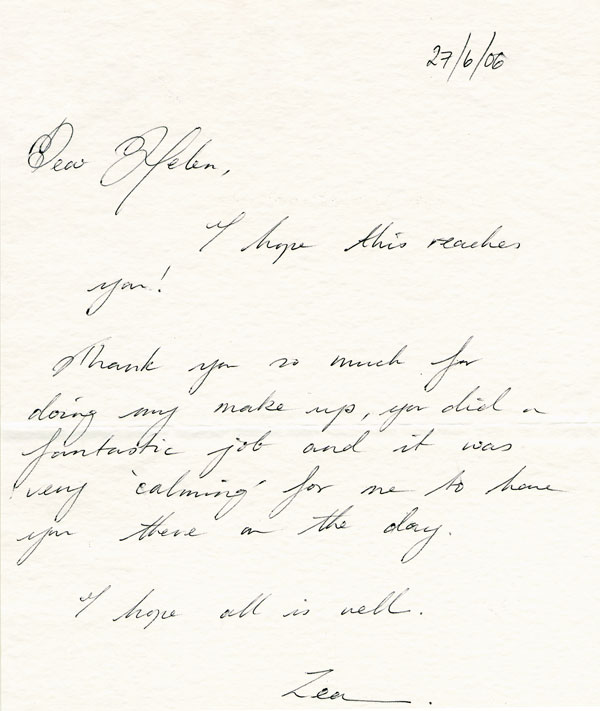 27/6/06
Dear Helen,
I hope this reaches
you!
Thank you so much for
doing my make up, you did a
fantastic job and it was
very 'calming' for me to have
you there on the day.
I hope all is well.
Zea.